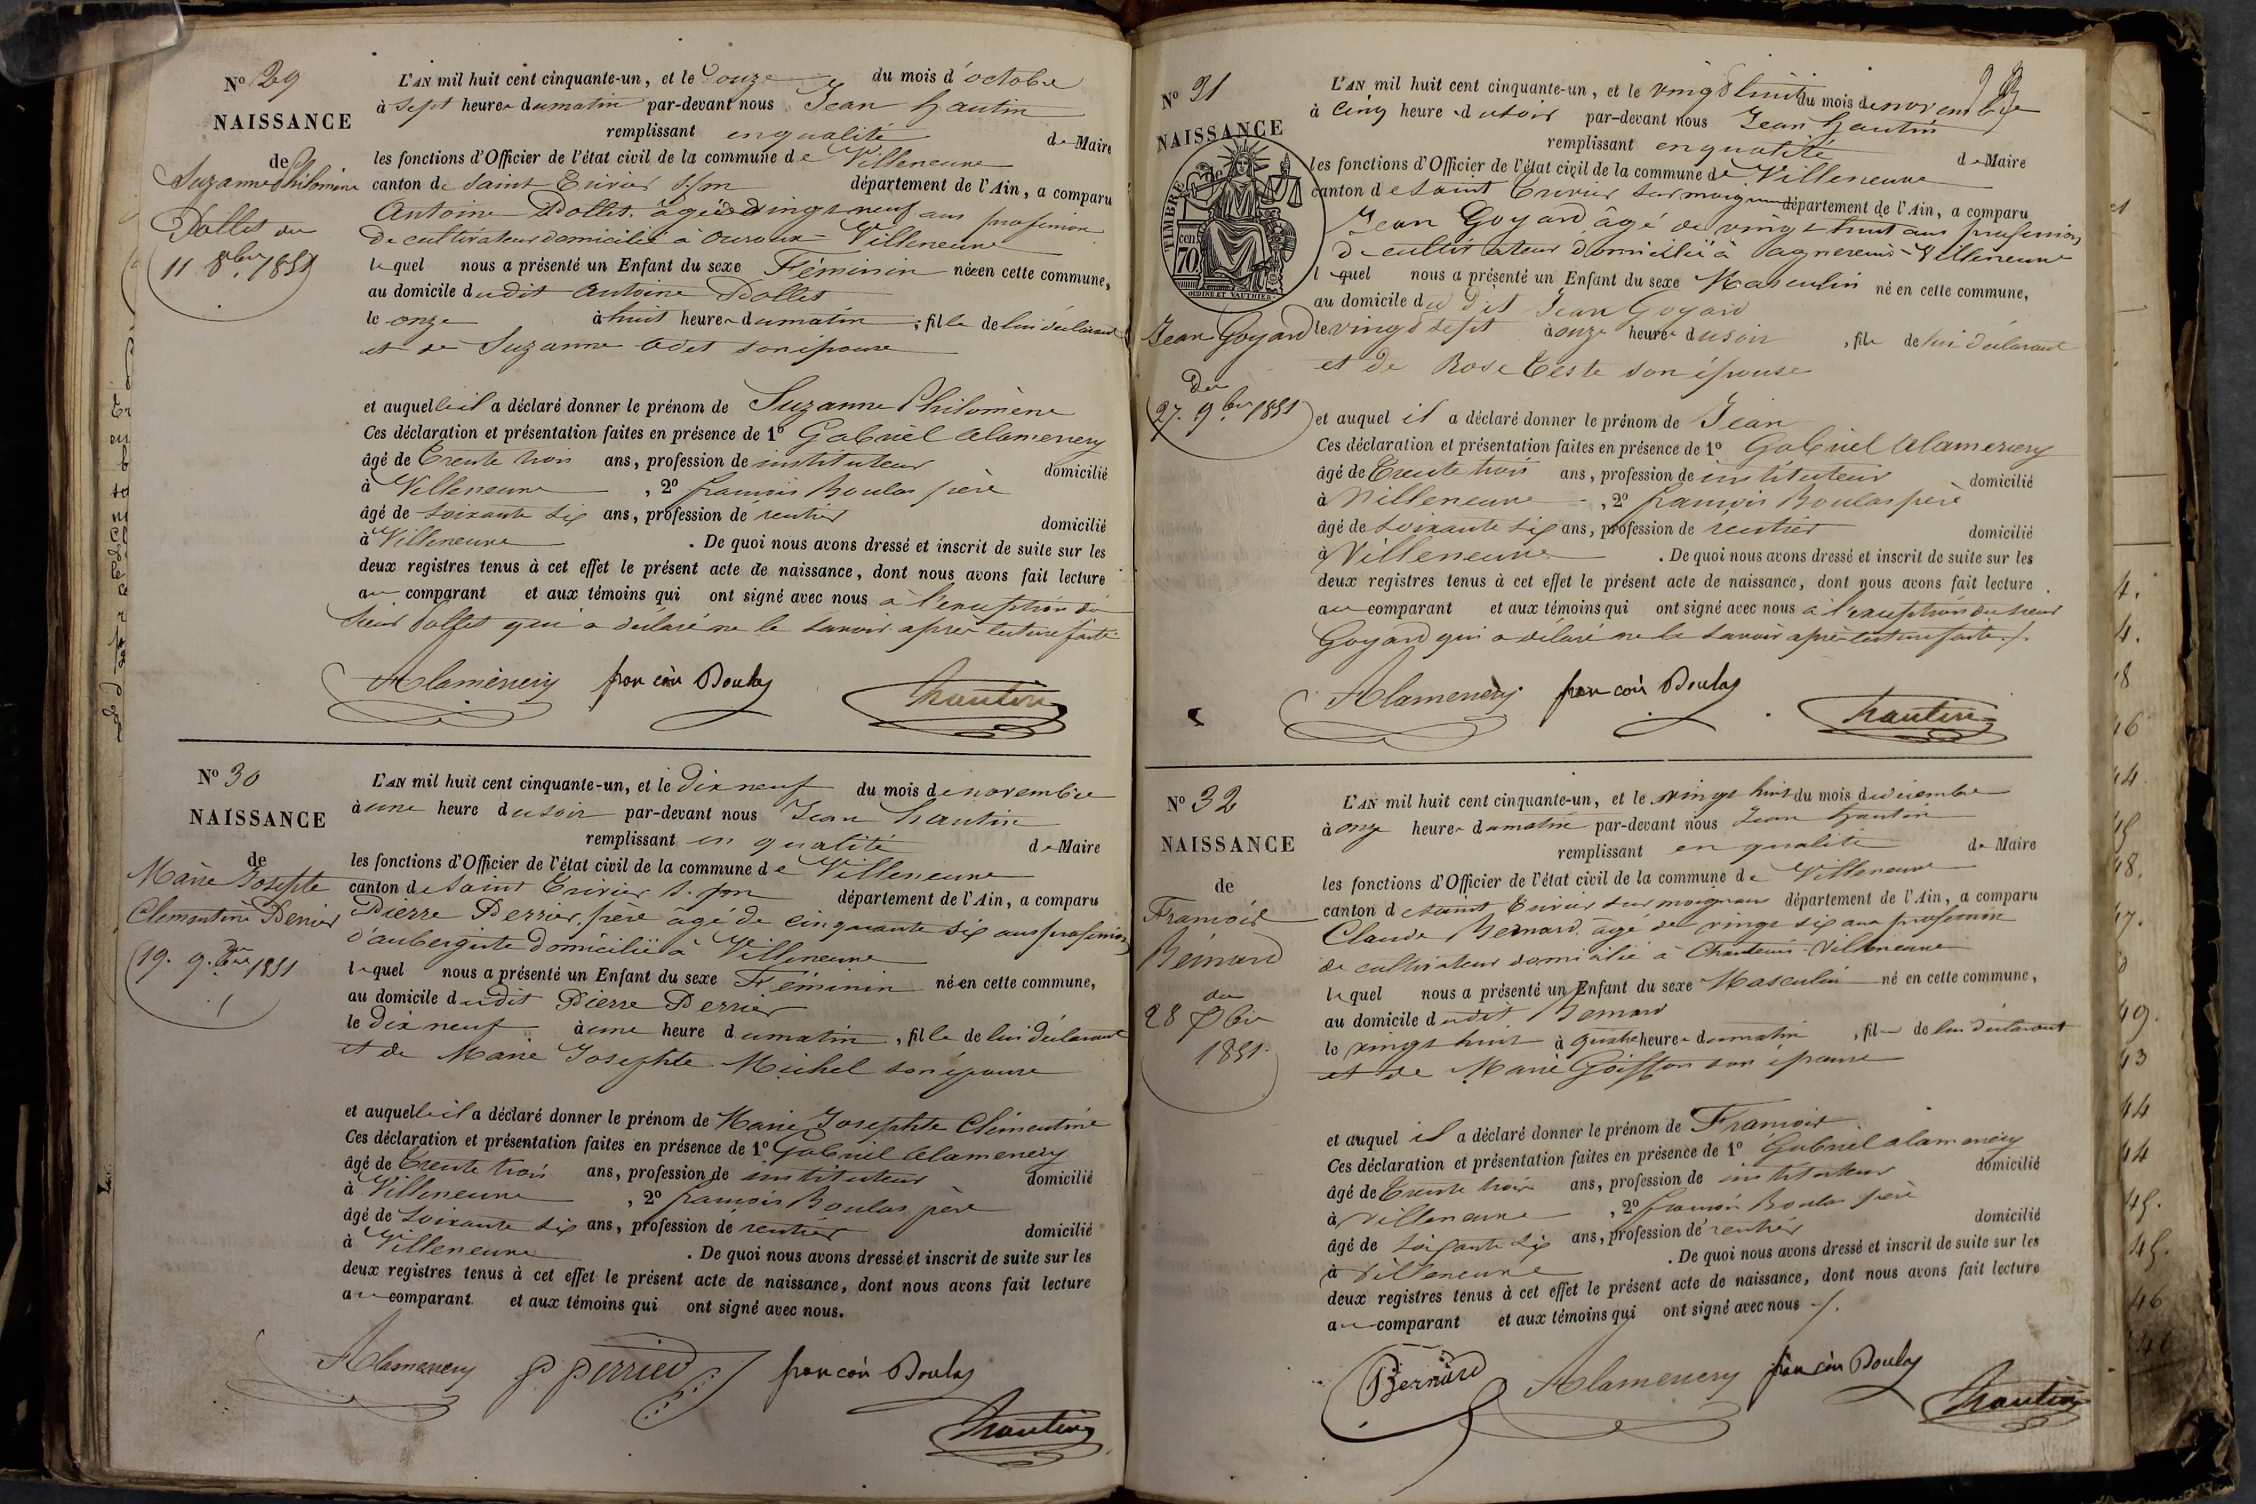 N° 29
NAISSANCE
de
Suzanne Philomène
Dollet du
11 8bre 1851
L'AN mil huit cent cinquante-un, et le douze du mois d'octobre
à sept heures du matin par-devant nous Jean hautin
remplissant en qualité de Maire
les fonctions d'Officier de l'état civil de la commune de Villeneuve
canton de Saint Trivier département de l'Ain, a comparu
Antoine Dollet, âgé de vingt neuf ans profession
de cultivateur domicilié à Villeneuve
lequel nous a présenté un Enfant du sexe Féminin née en cette commune,
au domicile dudit Antoine Dollet
le onze à huit heures du matin ; fille de lui déclarant
et de Suzanne son épouse
et auquel il a déclaré donner le prénom de Suzanne Philomène
Ces déclaration et présentation faites en présence de 1° Gabriel Alamercery
âgé de Trente trois ans, profession de instituteur domicilié
à Villeneuve , 2° françois Boulas père
âgé de soixante six ans, profession de rentier domicilié
à Villeneuve . De quoi nous avons dressé et inscrit de suite sur les
deux registres tenus à cet effet le présent acte de naissance, dont nous avons fait lecture
au comparant et aux témoins qui ont signé avec nous à l'exception du
Sieur Dollet qui a déclaré ne le savoir après lecture faite
Alamercery françois Boulas hautin
N° 30
NAISSANCE
de
Marie Josephte
Clementine Perrier
19. 9.bre 1851
L'AN mil huit cent cinquante-un, et le dix neuf du mois de novembre
à une heure du soir par-devant nous Jean hautin
remplissant en qualité de Maire
les fonctions d'Officier de l'état civil de la commune de Villeneuve
canton de Saint Trivier département de l'Ain, a comparu
Pierre Perrier, père âgé de cinquante six ans profession
d'aubergiste domicilié à Villeneuve
lequel nous a présenté un Enfant du sexe Féminin né en cette commune,
au domicile dudit Pierre Perrier
le dix neuf à une heure du matin , fille de lui déclarant
et de Marie Josephte Michel son épouse
et auquel il a déclaré donner le prénom de Marie Josephte Clémentine
Ces déclaration et présentation faites en présence de 1° Gabriel Alamercery
âgé de Trente trois ans, profession de instituteur domicilié
à Villeneuve , 2° françois Boulas père
âgé de soixante six ans, profession de rentier domicilié
à Villeneuve . De quoi nous avons dressé et inscrit de suite sur les
deux registres tenus à cet effet le présent acte de naissance, dont nous avons fait lecture
au comparant et aux témoins qui ont signé avec nous.
Alamercery P perrier françois Boulas
hautin
N° 31
NAISSANCE
TIMBRE
70 cen
ORDINE ET VAUTHIER
Jean Goyard
Du
27. 9.bre 1851
L'AN mil huit cent cinquante-un, et le vingt huit du mois de novembre
à cinq heures du soir par-devant nous Jean hautin
remplissant en qualité de Maire
les fonctions d'Officier de l'état civil de la commune de Villeneuve
canton de Saint Trivier sur moignans département de l'Ain, a comparu
Jean Goyard, âgé de vingt huit ans profession
de cultivateur domicilié à agnereins Villeneuve
lequel nous a présenté un Enfant du sexe Masculin né en cette commune,
au domicile du dit Jean Goyard
le vingt sept à onze heures du soir , fils de lui déclarant
et de Rose Teste son épouse
et auquel il a déclaré donner le prénom de Jean
Ces déclaration et présentation faites en présence de 1° Gabriel Alamercery
âgé de Trente trois ans, profession de instituteur domicilié
à Villeneuve , 2° françois Boulas père
âgé de soixante six ans, profession de rentier domicilié
à Villeneuve . De quoi nous avons dressé et inscrit de suite sur les
deux registres tenus à cet effet le présent acte de naissance, dont nous avons fait lecture
au comparant et aux témoins qui ont signé avec nous à l'exception du sieur
Goyard qui a déclaré ne le savoir après lecture faite.
Alamercery françois Boulas hautin
N° 32
NAISSANCE
de
François
Bernard
du
28 Xbre
1851
L'AN mil huit cent cinquante-un, et le vingt huit du mois de décembre
à onze heures du matin par-devant nous Jean hautin
remplissant en qualité de Maire
les fonctions d'Officier de l'état civil de la commune de Villeneuve
canton de Saint Trivier sur moignans département de l'Ain, a comparu
Claude Bernard, âgé de vingt six ans profession
de cultivateur domicilié à Chanteins Villeneuve
lequel nous a présenté un Enfant du sexe Masculin né en cette commune,
au domicile dudit Bernard
le vingt huit à quatre heures du matin , fils de lui déclarant
et de Marie Goiffon son épouse
et auquel il a déclaré donner le prénom de François
Ces déclaration et présentation faites en présence de 1° Gabriel alamercery
âgé de Trente trois ans, profession de instituteur domicilié
à Villeneuve , 2° françois Boulas père
âgé de soixante six ans, profession de rentier domicilié
à Villeneuve . De quoi nous avons dressé et inscrit de suite sur les
deux registres tenus à cet effet le présent acte de naissance, dont nous avons fait lecture
au comparant et aux témoins qui ont signé avec nous
Bernard Alamercery françois Boulas hautin